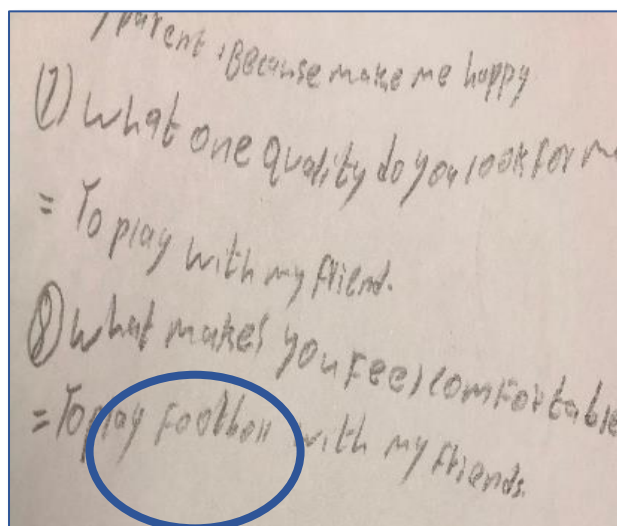 parent, Because make me happy
(7) What one quality do you look for m
= To play with my friend.
(8) What makes you Feel comfortable
= To play Football with my friends.